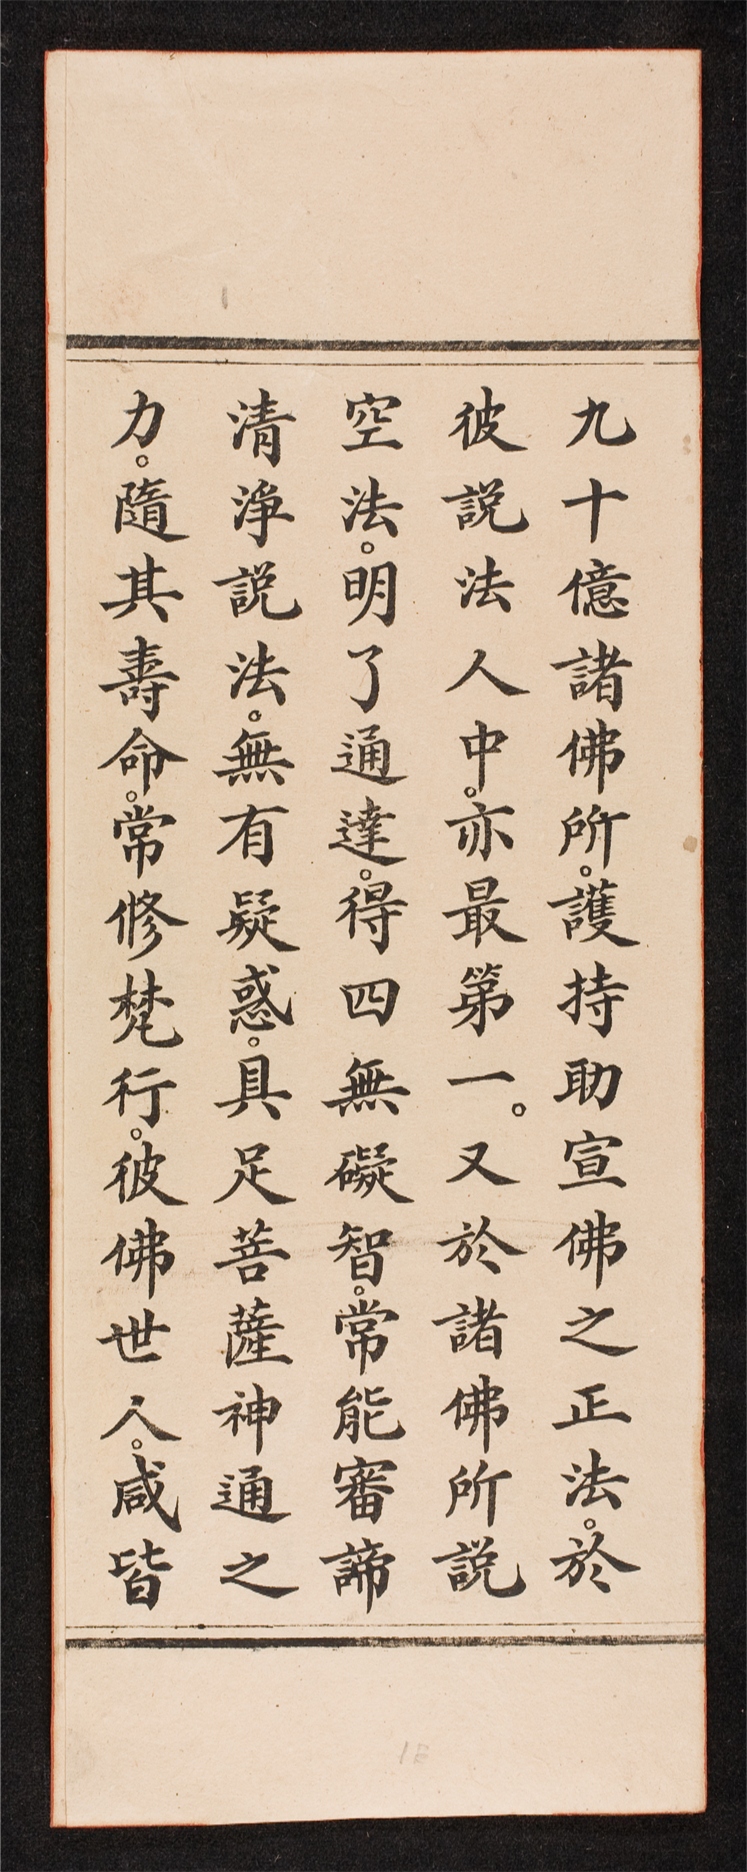 九十億諸佛所。護持助宣佛之正法。於
彼說法人中。亦最第一。又於諸佛所說
空法。明了通達。得四無礙智。常能審諦
清淨說法。無有疑惑。具足菩薩神通之
力。隨其壽命。常修梵行。彼佛世人。咸皆